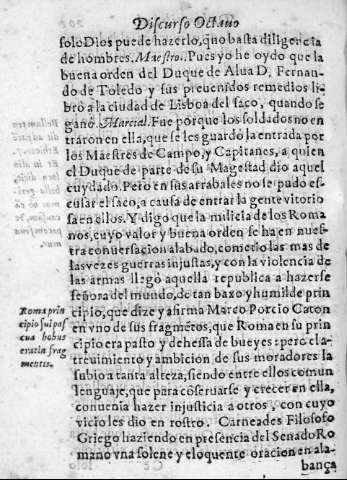 Discurso Octauo
solo Dios puede hazerlo, q̃ no basta diligẽcia
de hombres. Maestro. Pues yo he oydo que la
buena orden del Duque de Alua D. Fernan-
do de Toledo y sus preuenidos remedios li-
bró a la ciudad de Lisboa del saco, quando se
ganó. Marcial. Fue porque los soldados no en
traron en ella, que se les guardó la entrada por
los Maestres de Campo, y Capitanes, a quien
el Duque de parte de su Magestad dio aquel
cuydado. Pero en sus arrabales no se pudo es-
cusar el saco, a causa de entrar la gente vitorio
sa en ellos. Y digo que la milicia de los Roma
nos, cuyo valor y buena orden se ha en nues-
tra conuersacion alabado, començo las mas de
las vezes guerras injustas, y con la violencia de
las armas llegó aquella republica a hazerse
señora del mundo, de tan baxo y humilde prin
cipio, que dize y afirma Marco Porcio Caton
en vno de sus fragmẽtos, que Roma en su prin
cipio era pasto y dehessa de bueyes: pero el a-
treuimiento y ambicion de sus moradores la
subio a tanta alteza, siendo entre ellos comun
lenguaje, que para cõseruarse y crecer en ella,
conuenia hazer injusticia a otros, con cuyo
vicio les dio en rostro. Carneades Filosofo
Griego haziendo en presencia del Senado Ro
mano vna solene y eloquente oracion en ala-
bança
Roma prin
cipio sui pas
cua bobus
erat in frag
mentis.